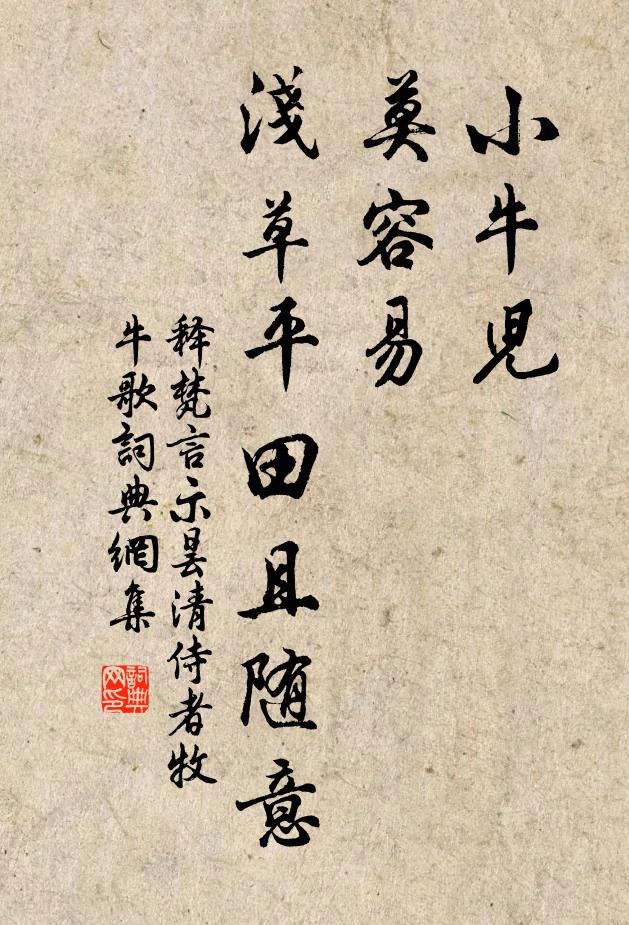 小牛児
莫容易
淺草平田且随意
释梵言示昙清侍者牧
牛歌詞典網集
詞典网印